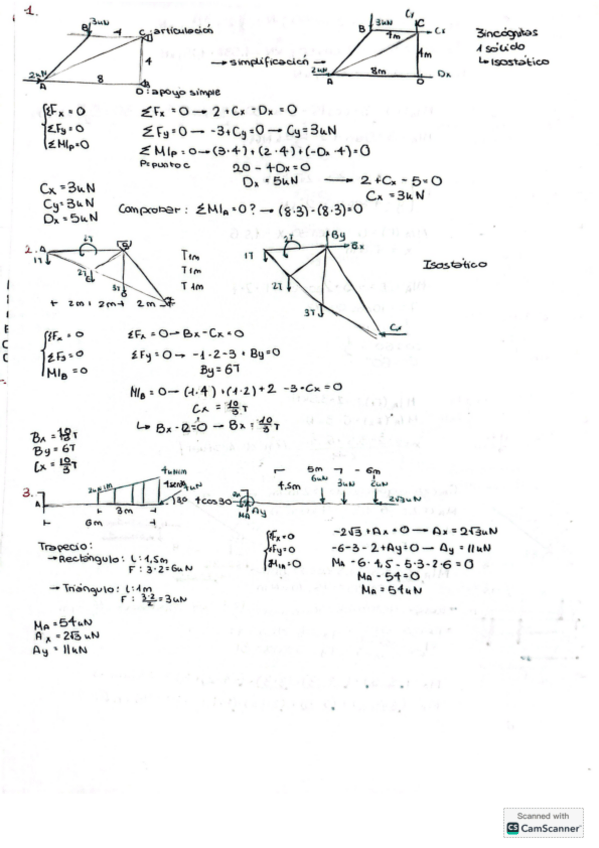 1.
3uN
B
4
C: articulación
4
2uN
A
8
D: apoyo simple
→ simplificación →
3uN
Cy
B
C
Cx
4m
4m
2uN
A
8m
D
Dx
3 incógnitas
1 sólido
↳ Isostático
ΣFx = 0
ΣFy = 0
ΣM|p = 0
ΣFx = 0 → 2 + Cx - Dx = 0
ΣFy = 0 → -3 + Cy = 0 → Cy = 3uN
ΣM|p = 0 → (3·4) + (2·4) + (-Dx·4) = 0
P = punto C
20 - 4Dx = 0
Dx = 5uN → 2 + Cx - 5 = 0
Cx = 3uN
Cx = 3uN
Cy = 3uN
Dx = 5uN
Comprobar: ΣM|A = 0? → (8·3) - (8·3) = 0
2.
A
2T
1T
2T
3T
2m
2m
2m
T 1m
T 1m
T 1m
By
2T
Bx
1T
2T
3T
Cx
Isostático
ΣFx = 0
ΣFy = 0
M|B = 0
ΣFx = 0 → Bx - Cx = 0
ΣFy = 0 → -1-2-3 + By = 0
By = 6T
M|B = 0 → (1·4) + (1·2) + 2 - 3·Cx = 0
Cx = 10/3 T
Bx = 10/3 T
By = 6T
Cx = 10/3 T
3.
4uN/m
2uN/m
4uN
30
4cos30
A
3m
6m
5m
6m
4,5m
6uN
3uN
2uN
2√3uN
MA
Ay
Trapecio:
→ Rectángulo: L: 1,5m
F: 3·2 = 6uN
→ Triángulo: L: 1m
F: 3·2/2 = 3uN
ΣFx = 0
ΣFy = 0
ΣM|A = 0
-2√3 + Ax = 0 → Ax = 2√3uN
-6-3-2 + Ay = 0 → Ay = 11uN
MA - 6·4,5 - 5·3 - 2·6 = 0
MA - 54 = 0
MA = 54uN
MA = 54uN
Ax = 2√3 uN
Ay = 11uN
Scanned with
CS CamScanner